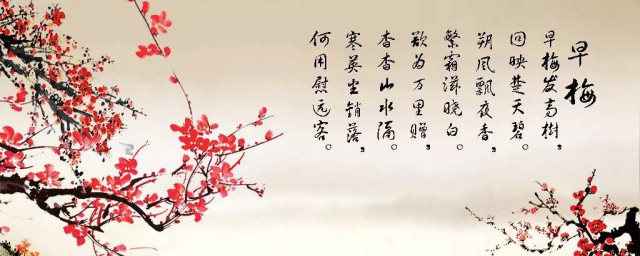 早梅
早梅发高樹，
回映楚天碧。
朔风飘夜香，
繁霜滋晓白。
欲为万里赠，
杳杳山水隔。
寒英坐销落，
何用慰远客。